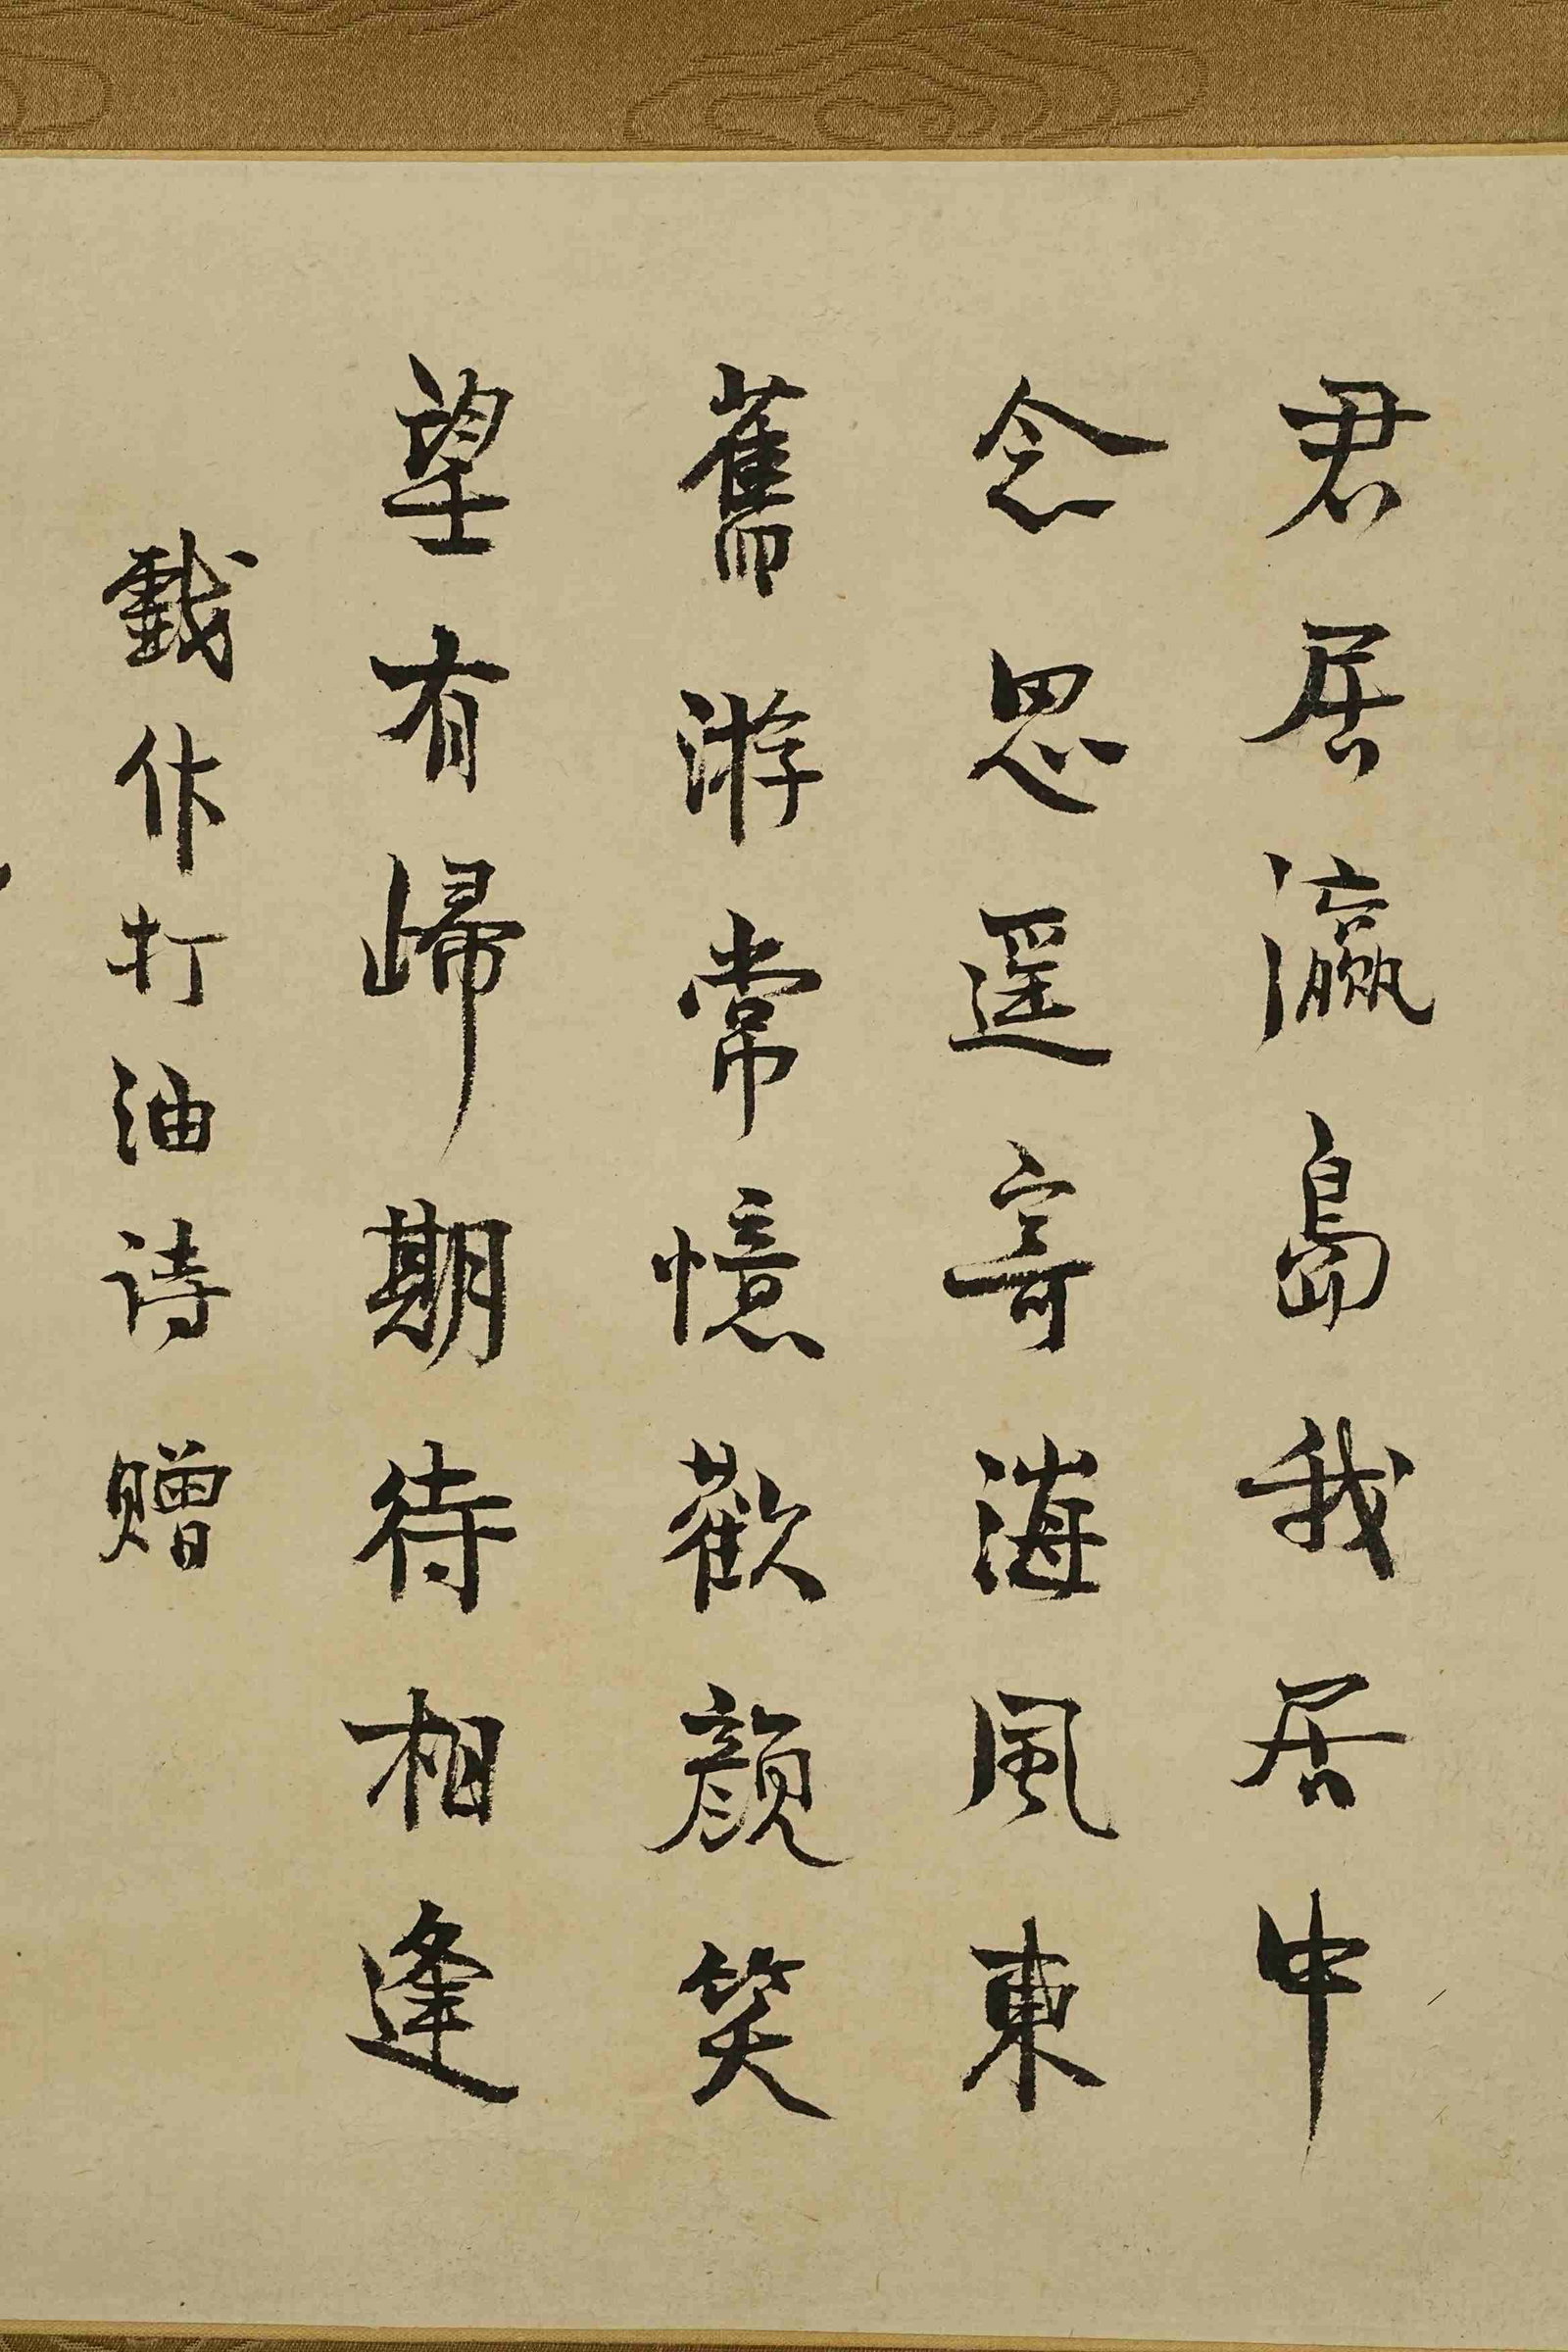 君居瀛島我居中
念思遥寄海風東
舊游常憶歡顏笑
望有歸期待相逢
戯作打油诗赠